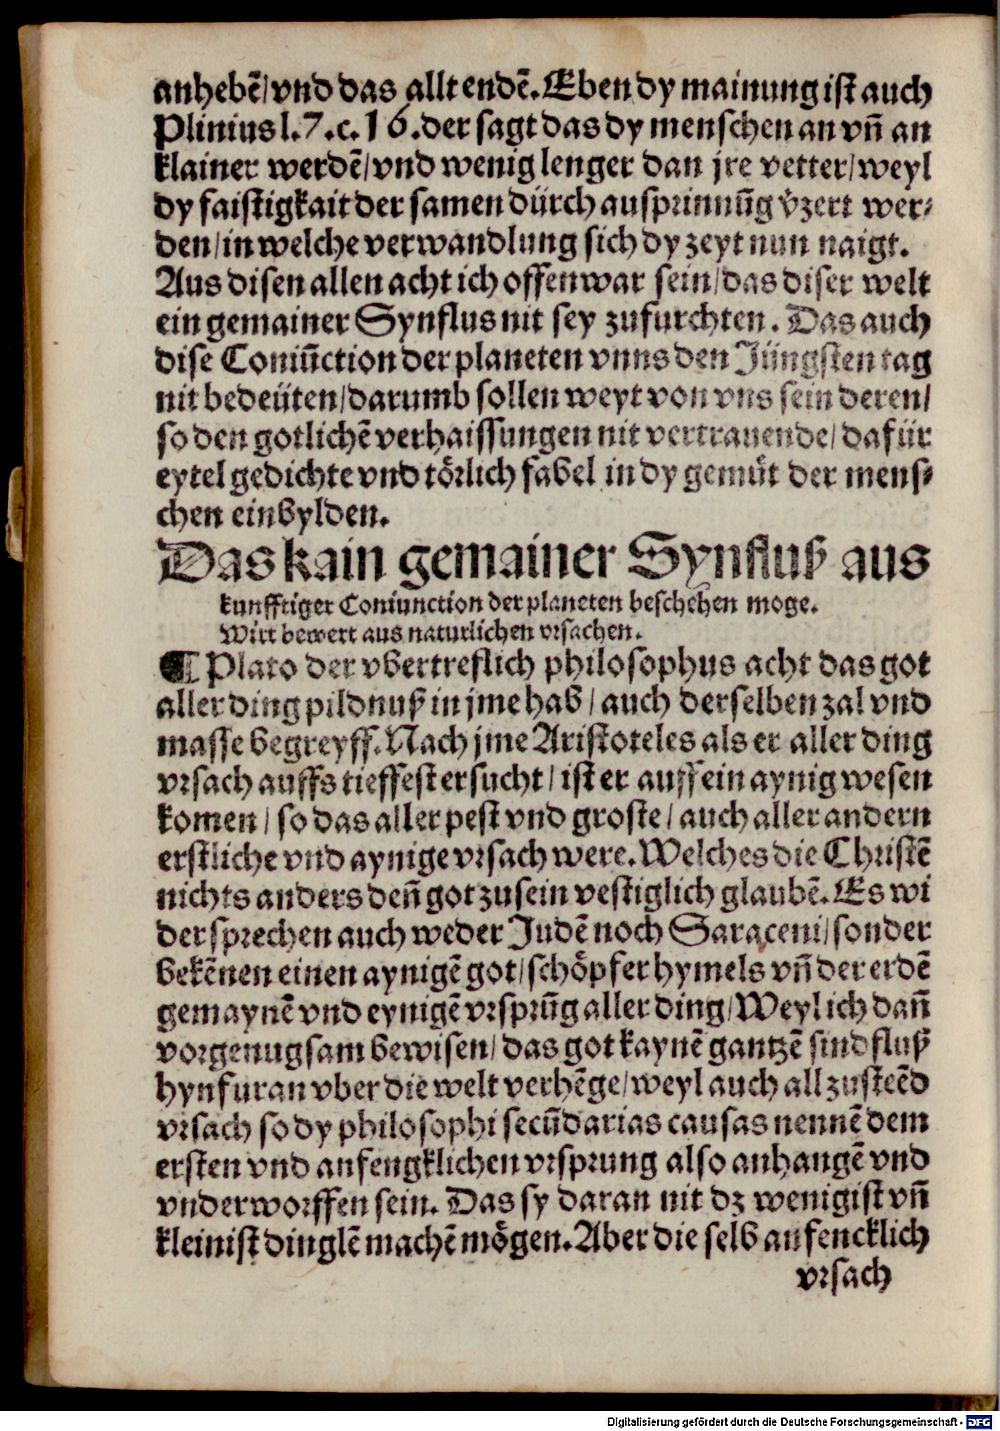 anhebē/vnd das allt endē. Eben dy mainung ist auch
Plinius l.7.c.16. der sagt das dy menschen an vn̄ an
klainer werdē/vnd wenig lenger dan jre vetter/weyl
dy faistigkait der samen dürch ausprinnūg v̈zert wer⸗
den/in welche verwandlung sich dy zeyt nun naigt.
Aus disen allen acht ich offenwar sein/das diser welt
ein gemainer Synflus nit sey zufurchten. Das auch
dise Coniūction der planeten vnns den Jüngsten tag
nit bedeüten/darumb sollen weyt von vns sein deren/
so den gotlichē verhaissungen nit vertrauende/dafür
eytel gedichte vnd törlich fabel in dy gemüt der mens⸗
chen einbylden.
Das kain gemainer Synfluß aus
kunfftiger Coniunction der planeten beschehen moge.
Wirt bewert aus naturlichen vrsachen.
¶ Plato der vbertreflich philosophus acht das got
aller ding pildnuß in jme hab/auch derselben zal vnd
masse begreyff. Nach jme Aristoteles als er aller ding
vrsach auffs tieffest ersucht/ist er auff ein aynig wesen
komen/so das aller pest vnd groste/auch aller andern
erstliche vnd aynige vrsach were. Welches die Christē
nichts anders den̄ got zu sein vestiglich glaubē. Es wi
der sprechen auch weder Judē noch Saraceni/sonder
bekēnen einen aynigē got/schöpfer hymels vn̄ der erdē
gemaynē vnd eynigē vrsprūg aller ding/Weyl ich dan̄
vor genugsam bewisen/das got kaynē gantzē sindfluß
hynfuran vber die welt verhēge/weyl auch all zusteēd
vrsach so dy philosophi secūdarias causas nennē dem
ersten vnd anfengklichen vrsprung also anhangē vnd
vnderworffen sein. Das sy daran nit dz wenigist vn̄
kleinist dinglē machē mögen. Aber die selb anfencklich
vrsach
Digitalisierung gefördert durch die Deutsche Forschungsgemeinschaft - DFG